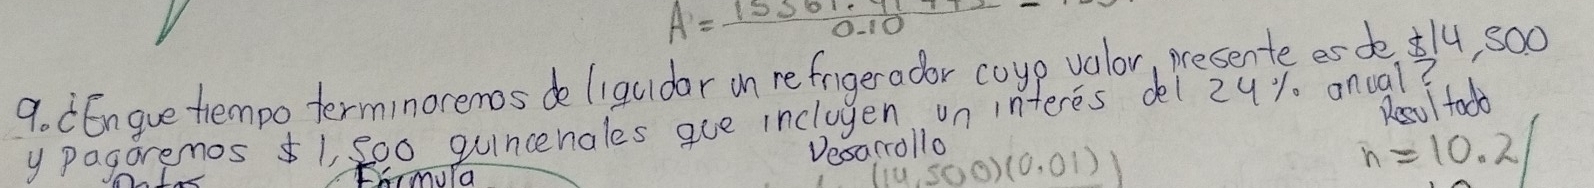 A =
0.10
9. ¿En que tiempo terminaremos de liquidar un refrigerador cuyo valor presente es de $14,500
y pagaremos $1,500 quincenales que incluyen un interés del 24% anual?
Resultado
Desarrollo
n = 10.2
Fórmula
(14,500)(0.01)